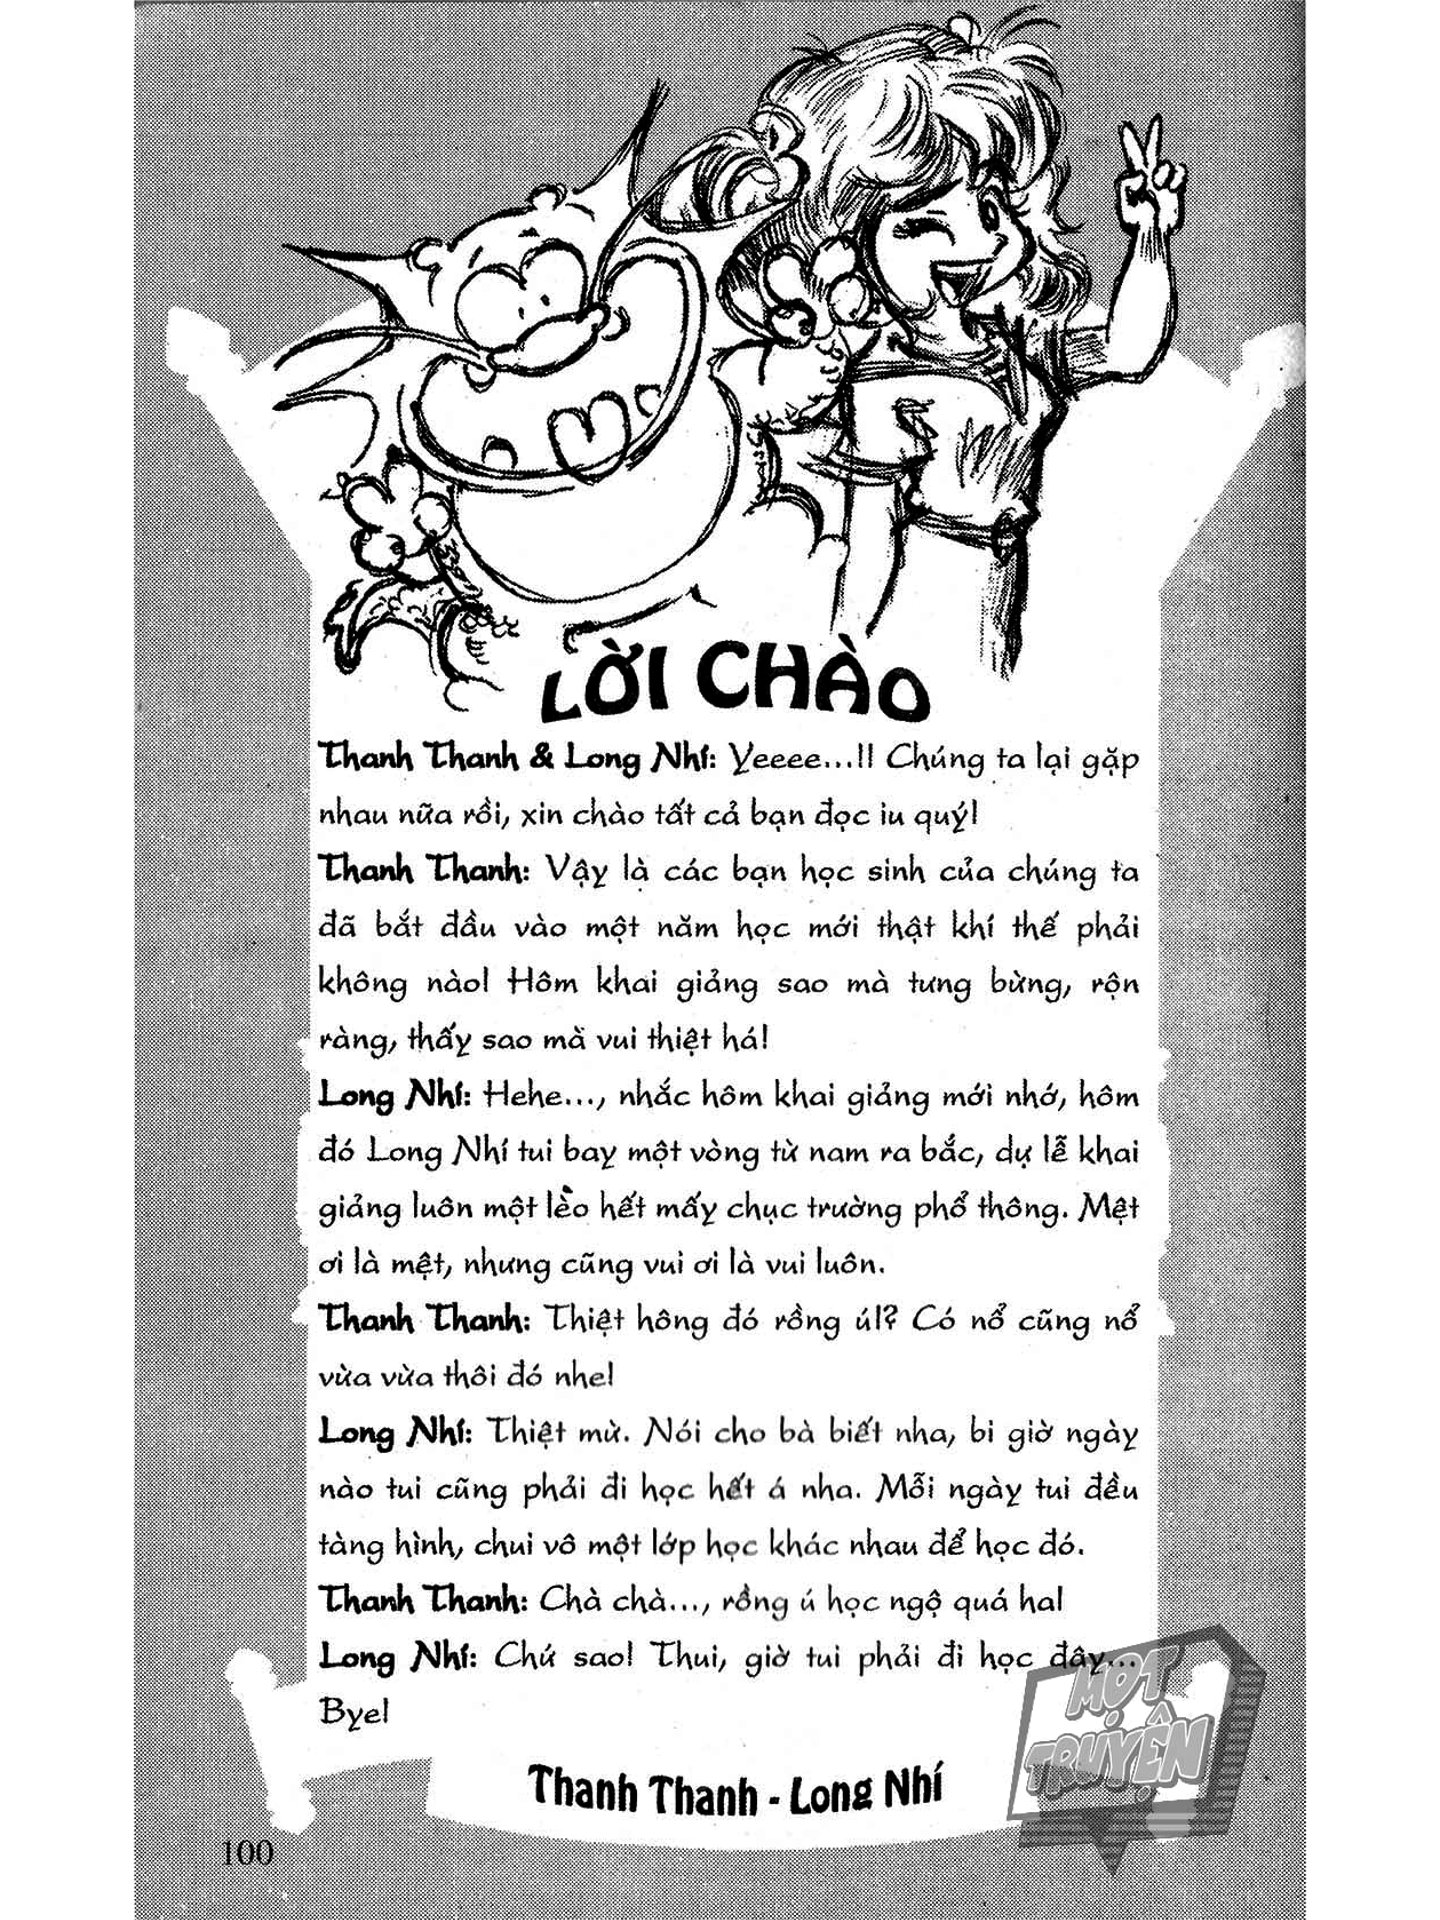 LỜI CHÀO
Thanh Thanh & Long Nhí: Yeeee...!! Chúng ta lại gặp
nhau nữa rồi, xin chào tất cả bạn đọc iu quý!
Thanh Thanh: Vậy là các bạn học sinh của chúng ta
đã bắt đầu vào một năm học mới thật khí thế phải
không nào! Hôm khai giảng sao mà tưng bừng, rộn
ràng, thấy sao mà vui thiệt há!
Long Nhí: Hehe..., nhắc hôm khai giảng mới nhớ, hôm
đó Long Nhí tui bay một vòng từ nam ra bắc, dự lễ khai
giảng luôn một lèo hết mấy chục trường phổ thông. Mệt
ơi là mệt, nhưng cũng vui ơi là vui luôn.
Thanh Thanh: Thiệt hông đó rồng ú!? Có nổ cũng nổ
vừa vừa thôi đó nhe!
Long Nhí: Thiệt mừ. Nói cho bà biết nha, bi giờ ngày
nào tui cũng phải đi học hết á nha. Mỗi ngày tui đều
tàng hình, chui vô một lớp học khác nhau để học đó.
Thanh Thanh: Chà chà..., rồng ú học ngộ quá ha!
Long Nhí: Chứ sao! Thui, giờ tui phải đi học đây...
Bye!
Thanh Thanh - Long Nhí
MỌT
TRUYỆN
100